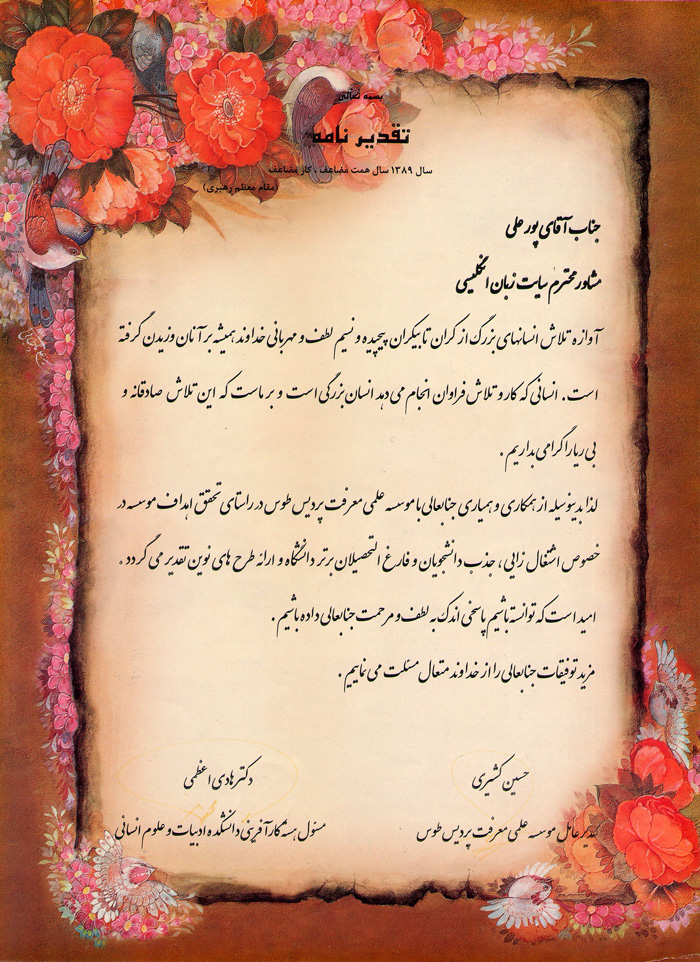 بسمه تعالی
تقدیر نامه
سال ۱۳۸۹ سال همت مضاعف ، کار مضاعف
(مقام معظم رهبری)
جناب آقای پور علی
مشاور محترم سایت زبان انگلیسی
آوازه تلاش انسانهای بزرگ از کران تا بیکران پیچیده و نسیم لطف و مهربانی خداوند همیشه بر آنان وزیدن گرفته
است. انسانی که کار و تلاش فراوان انجام می دهد انسان بزرگی است و بر ماست که این تلاش صادقانه و
بی ریا را گرامی بداریم .
لذا بدینوسیله از همکاری و همیاری جنابعالی با موسسه علمی معرفت پردیس طوس در راستای تحقق اهداف موسسه در
خصوص اشتغال زایی ، جذب دانشجویان و فارغ التحصیلان برتر دانشگاه و ارائه طرح های نوین تقدیر می گردد .
امید است که توانسته باشیم پاسخی اندک به لطف و مرحمت جنابعالی داده باشیم .
مزید توفیقات جنابعالی را از خداوند متعال مسئلت می نماییم .
حسین کشیری
دکتر هادی اعظمی
مدیر عامل موسسه علمی معرفت پردیس طوس
مسئول هسته کارآفرینی دانشکده ادبیات و علوم انسانی